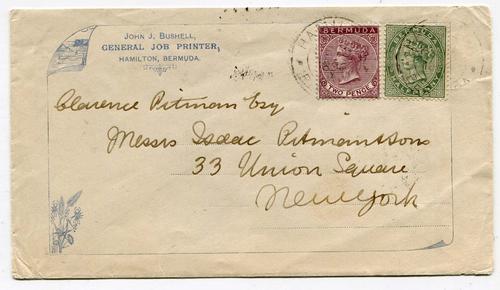 John J. Bushell,
General Job Printer,
Hamilton, Bermuda.
BERMUDA
TWO PENCE
BERMUDA
Clarence Pitman Esq
Messrs Isaac Pitman & Sons
33 Union Square
New York